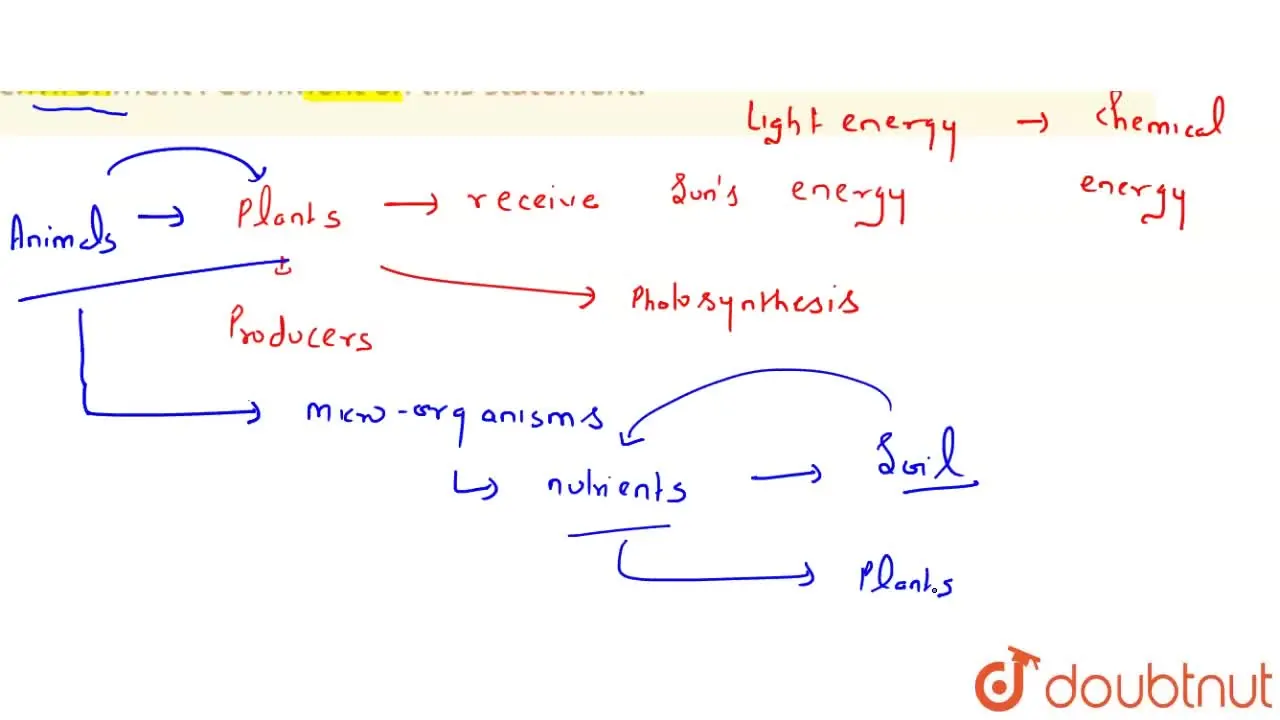 this statement.
Light energy → Chemical
energy
Animals → Plants → receive Sun's energy
Producers
Photosynthesis
micro-organisms
↳ nutrients → Soil
Plants
doubtnut